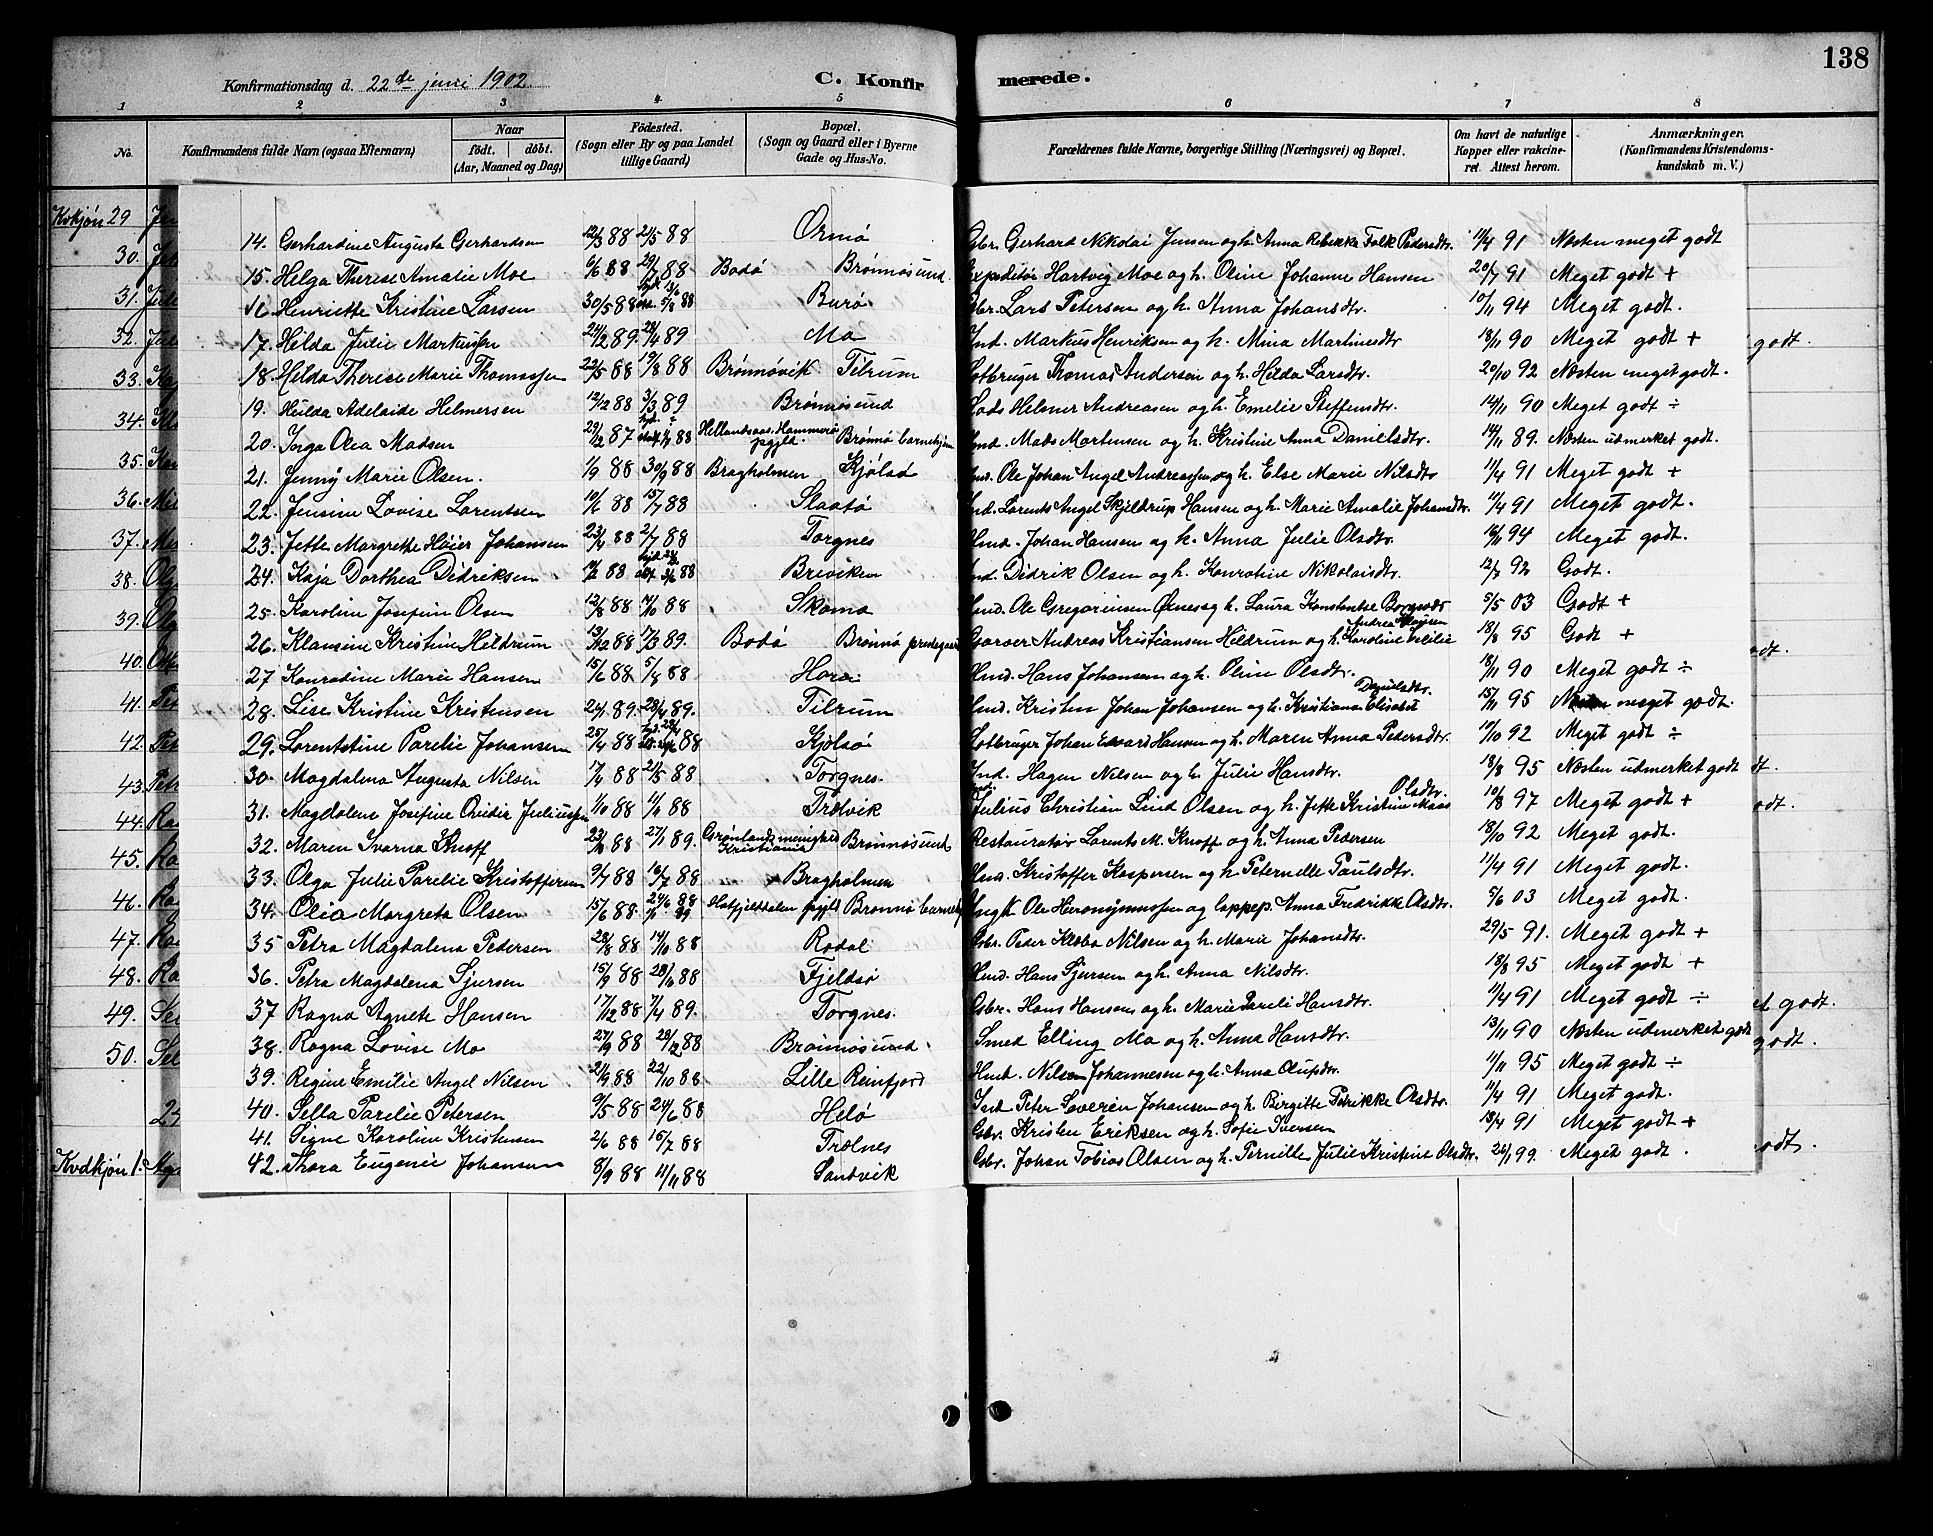 138
Konfirmationsdag d. 22de juni 1902.
C. Konfirmerede.
1 2 3 4 5 6 7 8
No.
Konfirmandens fulde Navn (ogsaa Efternavn)
Naar
födt. döbt.
(Aar, Maaned og Dag)
Födested.
(Sogn eller By og paa Landet
tillige Gaard)
Bopæl.
(Sogn og Gaard eller i Byerne
Gade og Hus-No.
Forældrenes fulde Navne, borgerlige Stilling (Næringsvei) og Bopæl.
Om havt de naturlige
Kopper eller vakcine-
ret. Attest herom.
Anmærkninger.
(Konfirmandens Kristendoms-
kundskab m. V.)
14. Gerhardine Augusta Gerhardsen 12/3 88 21/5 88 Ormø Gbr. Gerhard Nikolai Jensen og h. Anna Rebekka Falk Pedersdtr. 11/4 91 Næsten meget godt
15. Helga Therese Amalie Moe 6/6 88 29/7 88 Bodø Brønnøsund Expeditør Hartvig Moe og h. Oline Johanne Hansen 20/7 91 Meget godt +
16. Henriette Kristine Larsen 30/5 88 5/8 88 Burø Gbr. Lars Petersen og h. Anna Johansdtr. 10/11 94 Meget godt.
17. Hilda Julie Markussen 24/2 89. 28/4 89 Mo Ind. Markus Henriksen og h. Mina Martinusdtr 18/11 90 Meget godt +
18. Hilda Therese Marie Thomassen 22/5 88 19/8 88 Brønnøvik Tilrum Lotbruger Thomas Andersen og h. Hilda Larsdtr. 20/10 92 Næsten meget godt.
19. Hulda Adelaide Helmersen 12/12 88 3/3 89 Brønnøsund Lods Helmer Andreasen og h. Emelie Steffensdtr. 14/11 90 Meget godt ÷
20. Inga Olea Madsen 29/12 87 88 Hellandsaas, Hammerø pgjld. Brønnø barnehjem Hmd. Mads Mortensen og h. Kristine Anna Danielsdtr. 14/11 89. Næsten udmerket godt.
21. Jenny Marie Olsen. 1/9 88 30/9 88 Bragholmen Kjølsø Hmd. Ole Johan Angel Andreassen og h. Else Marie Nilsdtr 11/4 91 Meget godt +
22. Jensine Lovise Lorentsen 10/6 88 15/7 88 Slaatø Ind. Lorents Angel Skjeldrup Hansen og h. Marie Amalie Johansdtr. 11/4 91 Meget godt.
23. Jette Margrethe Høier Johansen 23/4 88 2/7 88 Torgnes Hmd. Johan Hansen og h. Anna Julie Olsdtr. 16/11 94 Meget godt.
24. Kaja Dorthea Didriksen 11/2 88 3/6 88 Breviken Ind. Didrik Olsen og h. Konradine Nikolaisdtr. 12/7 92 Godt.
25. Karoline Josefine Olsen 12/8 88 7/10 88 Skomo Hmd. Ole Gregoriusen Ørnes og h. Laura Konstantse 5/5 03 Godt +
26. Klausine Kristine Hildrum 13/12 88 17/3 89. Bodø Brønnø prestegaard Garver Andreas Kristiansen Hildrum og h. Karoline Cecilie 18/8 95 Godt +
27 Konradine Marie Hansen 15/6 88 5/8 88 Horn Hmd. Hans Johansen og h. Oline Olsdtr. 18/11 90 Meget godt ÷
28. Lise Kristine Kristensen 24/1 89. 28/4 89. Tilrum Hmd. Kristen Johan Johansen og h. Kristiana Elisabet Danielsdtr. 15/11 95 Næsten meget godt.
29. Lorentstine Parelie Johansen 25/4 88 88 Kjølsø Lotbruger Johan Edvard Hansen og h. Maren Anna Pedersdtr. 10/10 92 Meget godt ÷
30. Magdalena Augusta Nilsen 17/4 88 21/5 88 Torgnes. Ind. Hagen Nilsen og h. Julie Hansdtr. 18/8 95 Næsten udmerket godt
31. Magdalena Josefine Ovidia Juliussen 1/10 88 11/11 88 Trælvik Julius Christian Lind Olsen og h. Jette Kristine Olsdtr. 10/8 97 Meget godt +
32. Maren Ivarna Knoff 88 27/1 89. Grønlands menighed Kristiania Brønnøsund Restauratør Lorents M. Knoff og h. Anna Pedersen 18/10 92 Meget godt.
33. Olga Julie Parelie Kristoffersen 9/4 88 16/7 88 Bragholmen Hmd. Kristoffer Kaspersen og h. Peternelle Paulsdtr. 11/4 91 Meget godt.
34. Olia Margreta Olsen 15/6 88. 24/6 88 Hatfjelddalen pgjld Brønnø barnehj. Ungk Ole Hieronymussen og lappep. Anna Fredrikke Olsdtr. 5/6 03 Meget godt.
35 Petra Magdalena Pedersen 28/8 88 14/10 88 Rodal Gbr. Peder Klæbo Nilsen og h. Marie Johansdtr. 29/5 91. Meget godt +
36. Petra Magdalena Sjursen 15/9 88 28/10 88 Fjeldsø Hmd. Hans Sjursen og h. Anna Nilsdtr. 18/8 95 Meget godt +
37 Ragna Agnete Hansen 17/12 88 7/4 89. Torgnes. Gbr. Hans Hansen og h. Marie Pareli Hansdtr. 11/4 91 Meget godt ÷
38. Ragna Lovise Mo 27/9 88 28/12 88 Brønnøsund Smed Elling Mo og h. Anna Hansdtr. 13/11 90 Næsten udmerket godt
39. Regine Emilie Angel Nilsen 21/9 88 22/10 88 Lille Reinfjord Hmd. Nilsen Johannesen og h. Anna Olupsdtr. 11/11 95 Meget godt ÷
40. Sella Parelie Petersen 9/5 88 24/6. 88 Helø Ind. Peter Severin Johansen og h. Birgitte Petrikke Olsdtr. 11/4 91 Meget godt.
41. Signe Karoline Kristensen 2/6 88 15/7 88 Trælnes Gbr. Kristen Eriksen og h. Sofie Iversen 18/4 91 Meget godt +
42. Thora Eugenie Johansen 8/9 88 11/11 88 Sandvik Gbr. Johan Tobias Olsen og h. Pernille Julie Kristine Olsdtr. 26/1 99. Meget godt.
Kvkjøn 29
30.
31.
32. godt.
33.
34.
35.
36.
37.
38.
39.
40. odt.
41.
42.
43. dt.
44. odt.
45.
46.
47.
48.
49. et godt.
50. godt.
Kvdkjøn 1. odt.